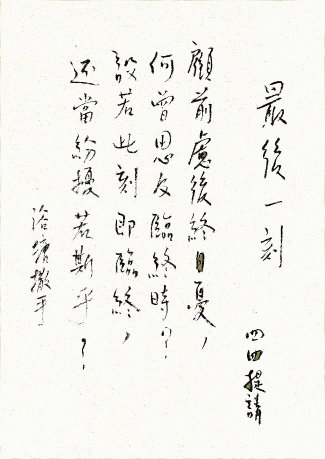 最後一刻
四四提請
顧前慮後終日憂，
何曾思及臨終時？
設若此刻即臨終，
还當紛擾若斯乎？
撒手